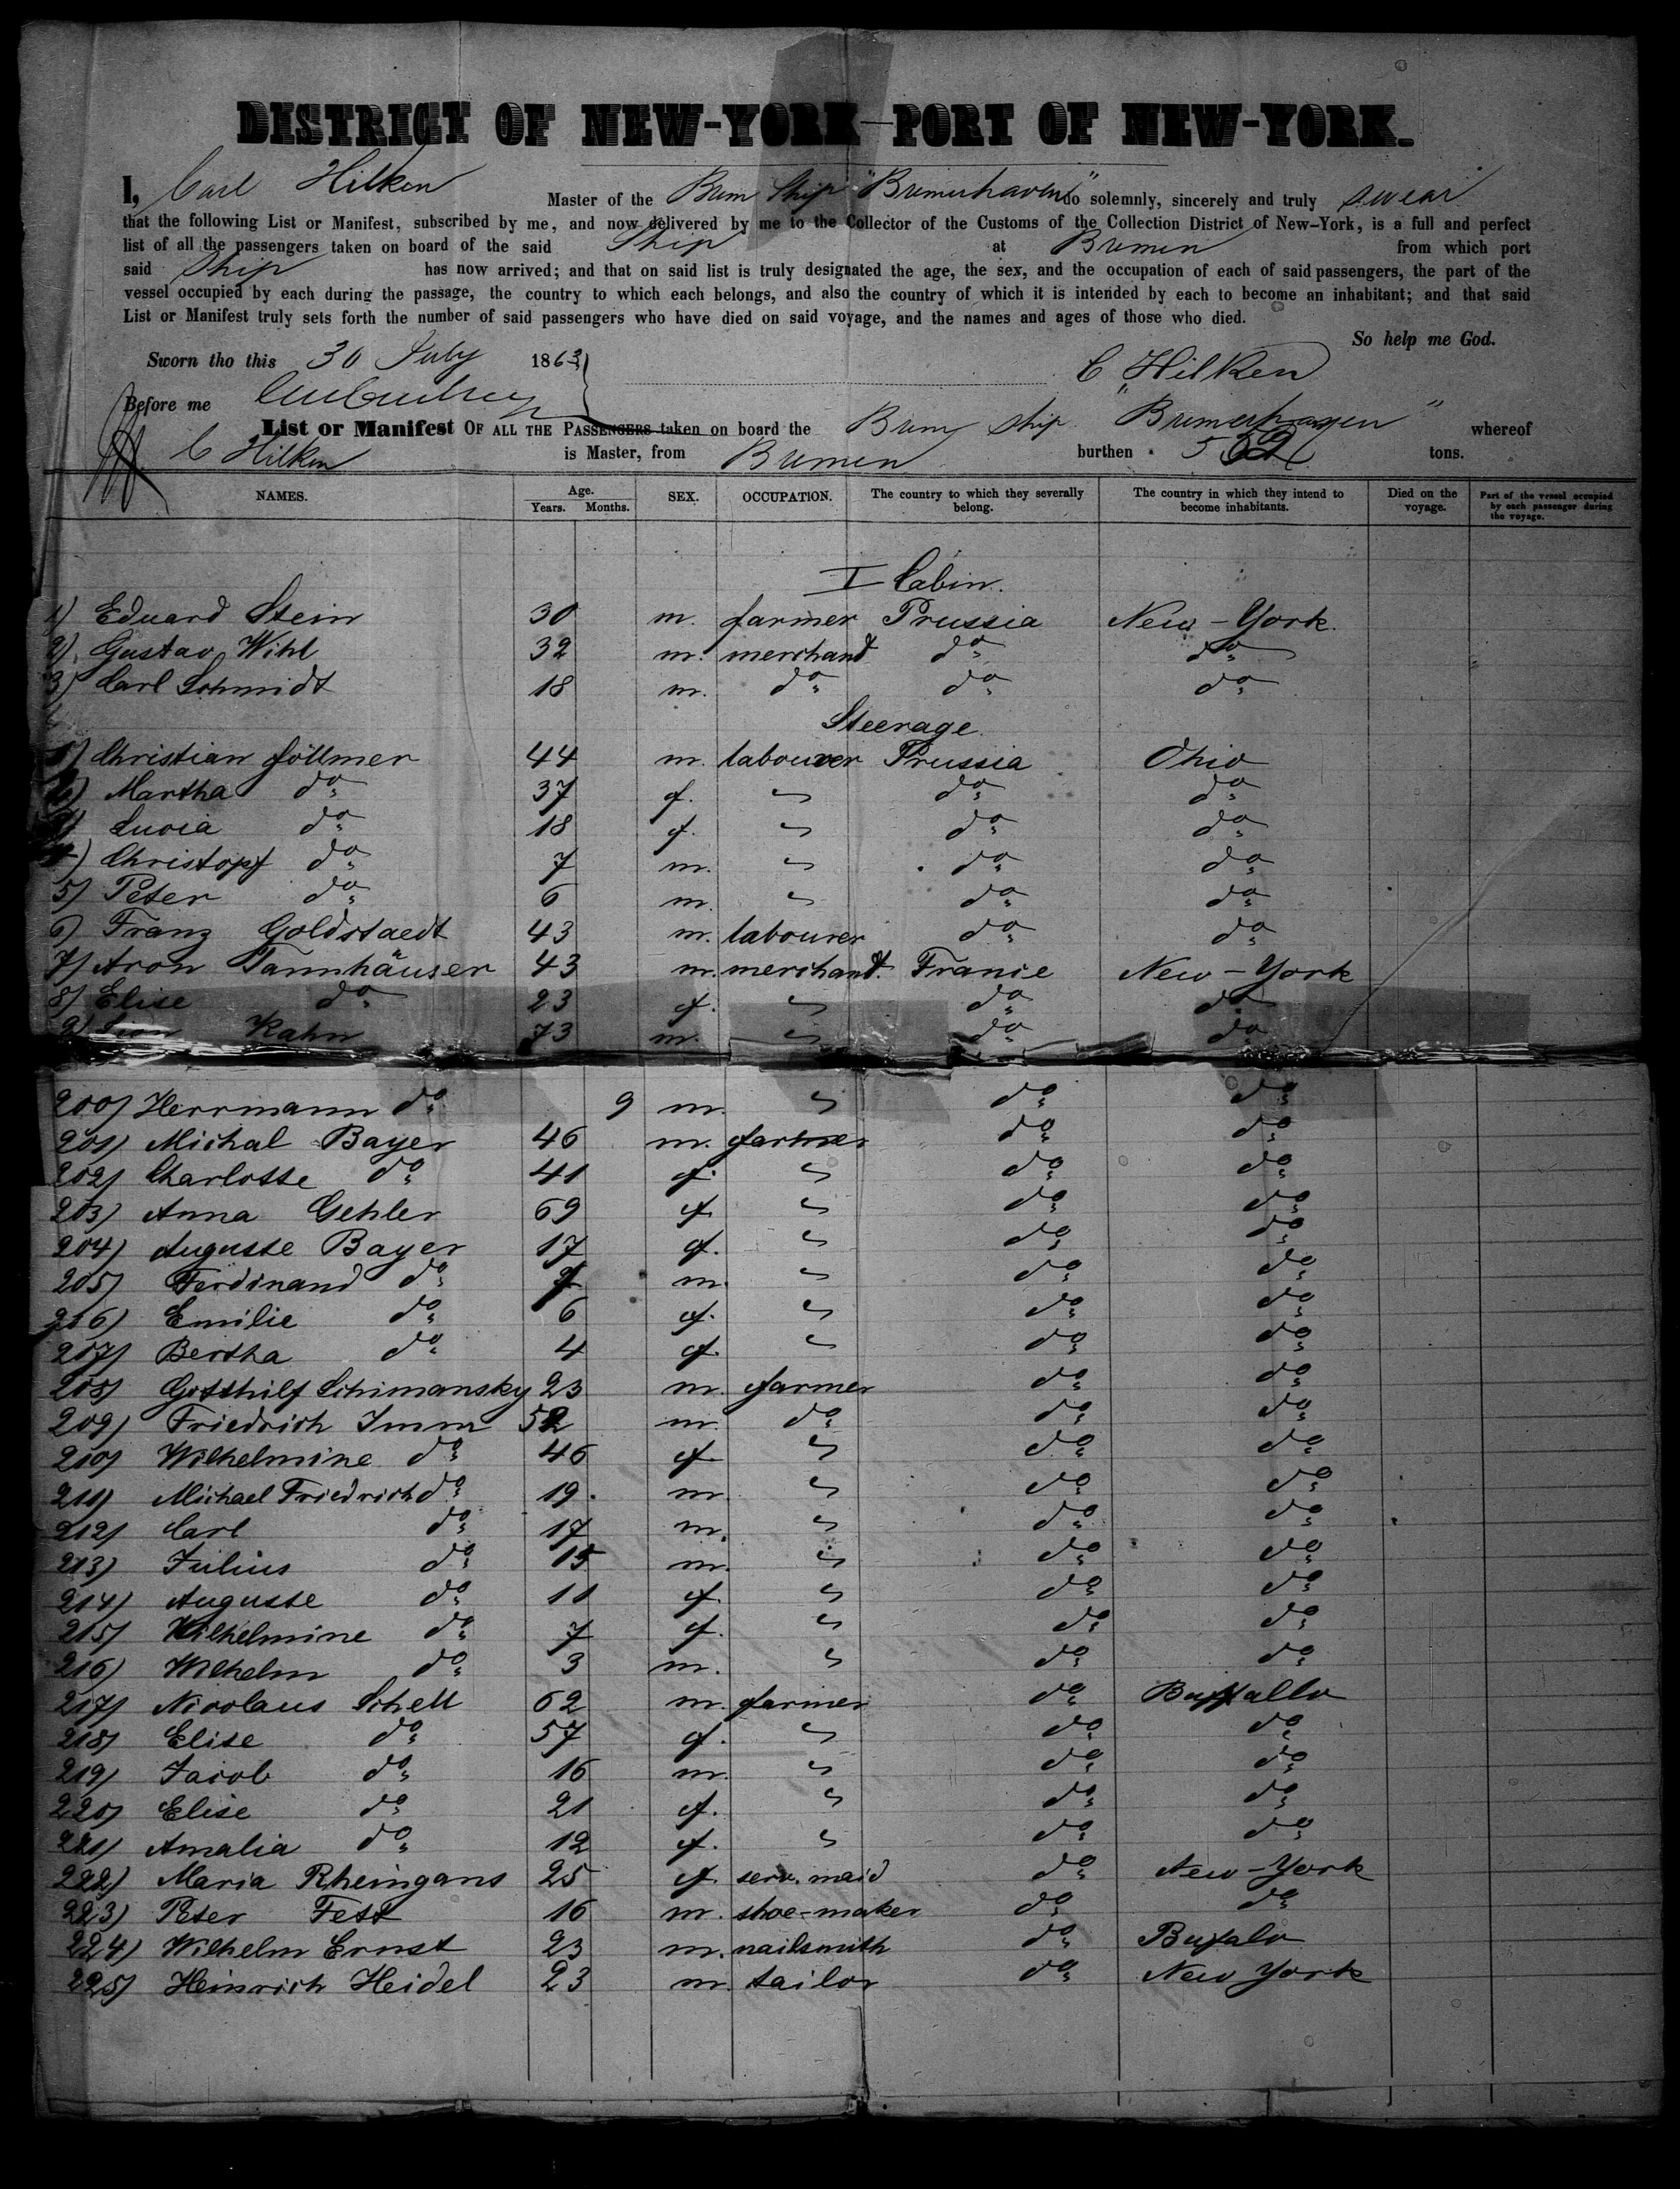 DISTRICT OF NEW-YORK—PORT OF NEW-YORK.
I, Carl Hilken Master of the Brem Ship "Bremerhaven" do solemnly, sincerely and truly swear
that the following List or Manifest, subscribed by me, and now delivered by me to the Collector of the Customs of the Collection District of New-York, is a full and perfect
list of all the passengers taken on board of the said Ship at Bremen from which port
said Ship has now arrived; and that on said list is truly designated the age, the sex, and the occupation of each of said passengers, the part of the
vessel occupied by each during the passage, the country to which each belongs, and also the country of which it is intended by each to become an inhabitant; and that said
List or Manifest truly sets forth the number of said passengers who have died on said voyage, and the names and ages of those who died.
So help me God.
Sworn tho this 30 July 1863
C Hilken
Before me
List or Manifest OF ALL THE PASSENGERS taken on board the Brem ship "Bremerhaven" whereof
C Hilken is Master, from Bremen burthen tons.
NAMES. Age. Years. Months. SEX. OCCUPATION. The country to which they severally belong. The country in which they intend to become inhabitants. Died on the voyage. Part of the vessel occupied by each passenger during the voyage.
I Cabin.
1) Eduard Stein 30 m. farmer Prussia New-York.
2) Gustav Wihl 32 m. merchant do do
3) Carl Schmidt 18 m. do do do
Steerage
1) Christian Föllmer 44 m. labourer Prussia Ohio
2) Martha do 37 f. " do do
3) Lucia do 18 f. " do do
4) Christopf do 7 m. " do do
5) Peter do 6 m. " do do
6) Franz Goldstaedt 43 m. labourer do do
7) Aron Tannhäuser 43 m. merchant. France New-York
8) Elise do 23 f. " do do
9) Kahn 73 m. " do do
200) Herrmann do 9 m. " do do
201) Michal Bayer 46 m. farmer do do
202) Charlotte do 41 f. " do do
203) Anna Gehler 69 f. " do do
204) Auguste Bayer 17 f. " do do
205) Ferdinand do m. " do do
206) Emilie do 6 f. " do do
207) Bertha do 4 f. " do do
208) Gotthilf Schimansky 23 m. farmer do do
209) Friedrich Imm 52 m. do do do
210) Wilhelmine do 46 f " do do
211) Michael Friedrich do 19. m. " do do
212) Carl do 17 m. " do do
213) Julius do 15 m. " do do
214) Auguste do 11 f. " do do
215) Wilhelmine do 7 f. " do do
216) Wilhelm do 3 m. " do do
217) Nicolaus Schell 62 m. farmer do Buffallo
218) Elise do 57 f. " do do
219) Jacob do 16 m. " do do
220) Elise do 21 f. " do do
221) Amalia do 12 f. " do do
222) Maria Rheingans 25 f. serv. maid do New-York
223) Peter Fest 16 m. shoe-maker do do
224) Wilhelm Ernst 23 m. nailsmith do Bufalo
225) Heinrich Heidel 23 m. tailor do New York